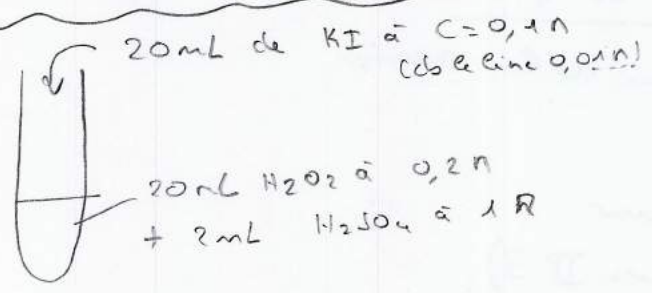 20mL de KI à C=0,1M
(ds le livre 0,01M)
20mL H2O2 à 0,2M
+ 2mL H2SO4 à 1M